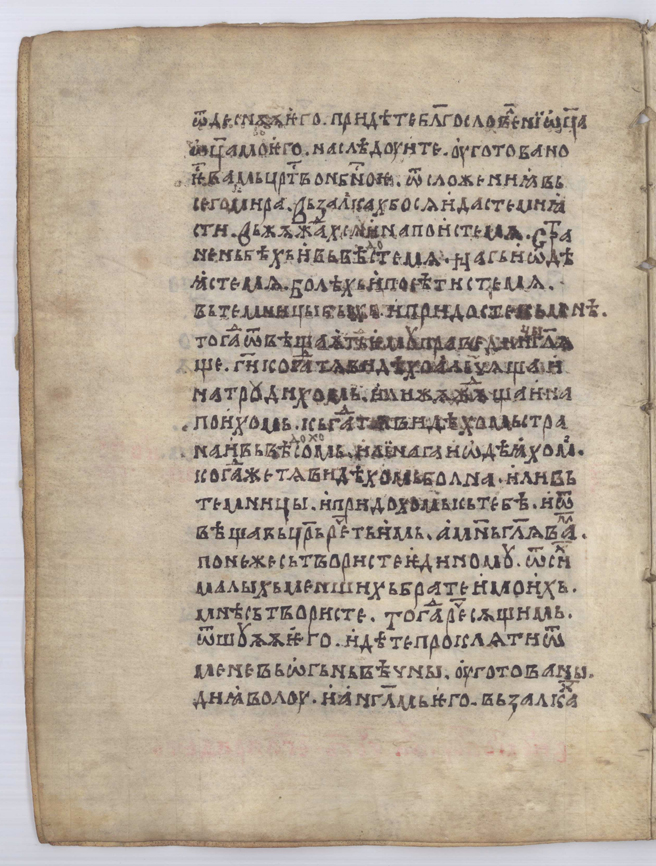 ѿдеснѫѫ его. придѣте бл҃гословенїи ѡц҃а
ѡц҃а моего. наслѣдоуите. оуготовано
е вамь цр҃тво нб҃ное. ѿ сложениꙗ вь
сего мира. вьзалках бо сѧ и дастеми ꙗ
сти. вьжѫжда́х сѧ и напоистемѧ. стра
нень бѣхь и вьвѣстемѧ. нагь и ѡдѣ
ꙗстемѧ. болѣхь и посѣтистемѧ.
вьтемници бѣхь. и придосте кь менѣ.
тогда ѿвѣщаѫть емоу праведници гл҃ѧ
ще. ги҃ когда тѧ видѣхо алчѫща и
натроудихомь. или жѫжѫща и на
поихомь. когда тѧ видѣхомь стра
на и вьвѣдохомь. или нага и ѡдѣꙗхом.
когда же тѧ видѣхомь болна. или вь
темницы. и придохомь кьтебѣ. и ѿ
вѣщавь цр҃ь рече́ть имь. аминь гл҃ѧ ва́.
понеже сьтвористе единомоу. ѿ си
малыхь менших братеи моихь.
мнѣ сьтвористе. тогда рече́ сѫщимь.
ѿшоуѫѫ его. идѣте проклѧти ѿ
мене вь ѡгьнь вѣчны. оуготованы.
диꙗволоу. и англ҃мь его. вьзалка